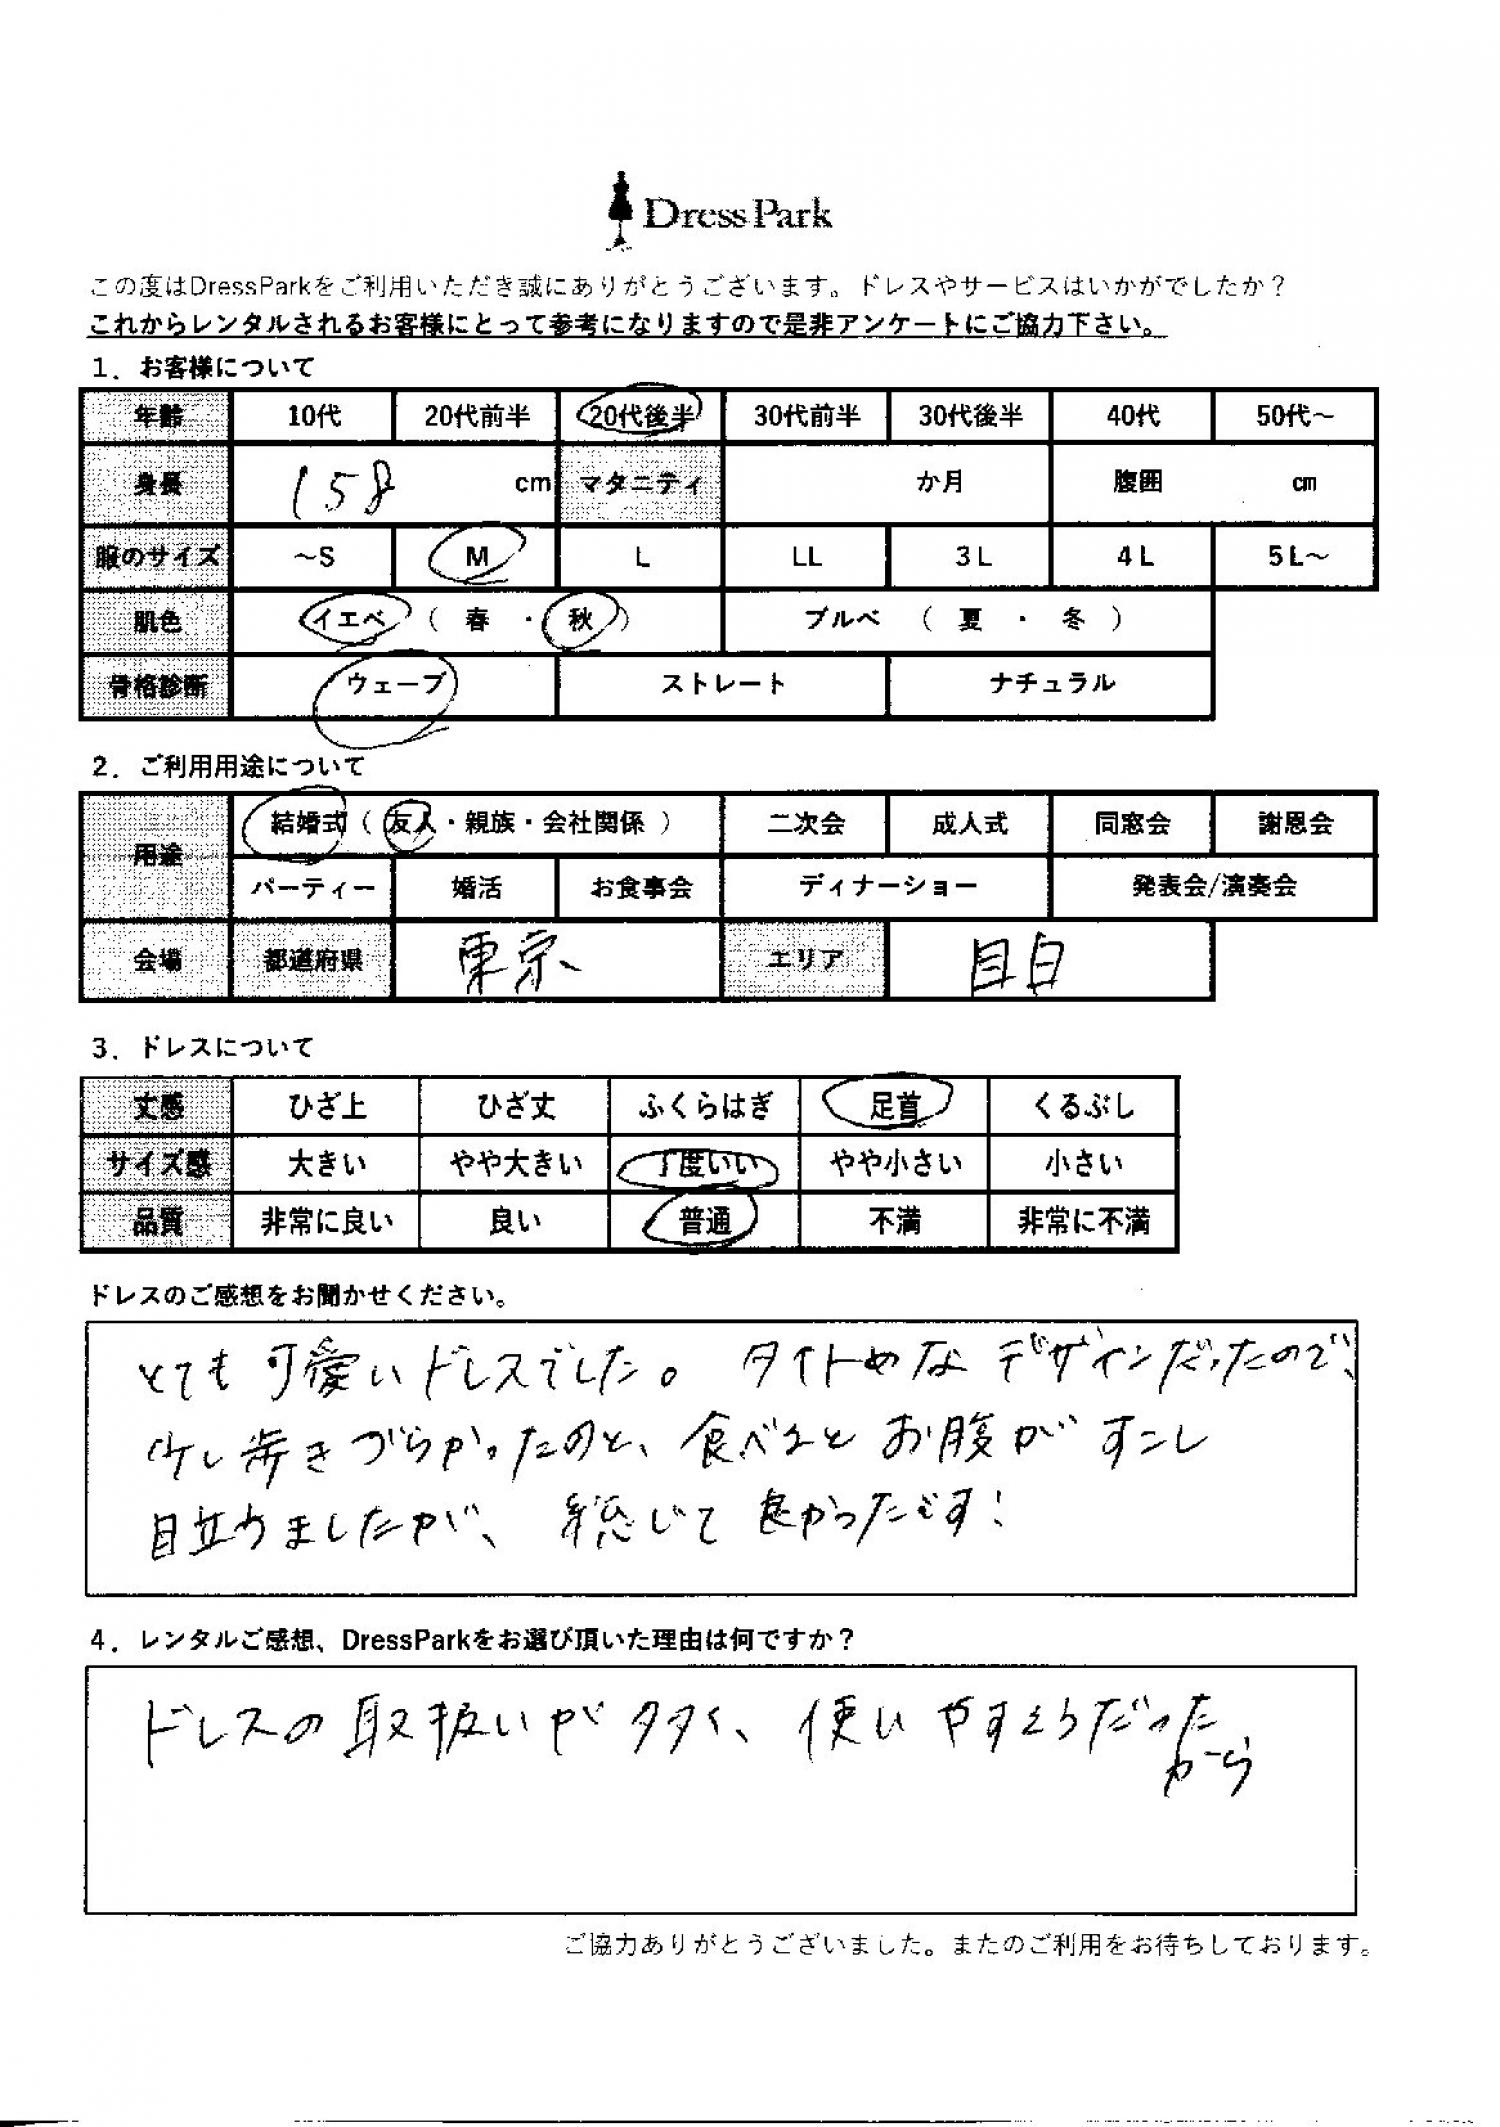 DressPark
この度はDressParkをご利用いただき誠にありがとうございます。ドレスやサービスはいかがでしたか？
これからレンタルされるお客様にとって参考になりますので是非アンケートにご協力下さい。
1．お客様について
年齢 10代 20代前半 20代後半 30代前半 30代後半 40代 50代～
身長 158 cm マタニティ か月 腹囲 cm
服のサイズ ～S M L LL 3L 4L 5L～
肌色 イエベ（ 春 ・ 秋 ） ブルベ （ 夏 ・ 冬 ）
骨格診断 ウェーブ ストレート ナチュラル
2．ご利用用途について
用途 結婚式（ 友人・親族・会社関係 ） 二次会 成人式 同窓会 謝恩会
パーティー 婚活 お食事会 ディナーショー 発表会/演奏会
会場 都道府県 東京 エリア 目白
3．ドレスについて
丈感 ひざ上 ひざ丈 ふくらはぎ 足首 くるぶし
サイズ感 大きい やや大きい 丁度いい やや小さい 小さい
品質 非常に良い 良い 普通 不満 非常に不満
ドレスのご感想をお聞かせください。
とても可愛いドレスでした。タイトめなデザインだったので、
少し歩きづらかったのと、食べるとお腹がすこし
目立ちましたが、総じて良かったです！
4．レンタルご感想、DressParkをお選び頂いた理由は何ですか？
ドレスの取扱いが多く、使いやすそうだった
から
ご協力ありがとうございました。またのご利用をお待ちしております。